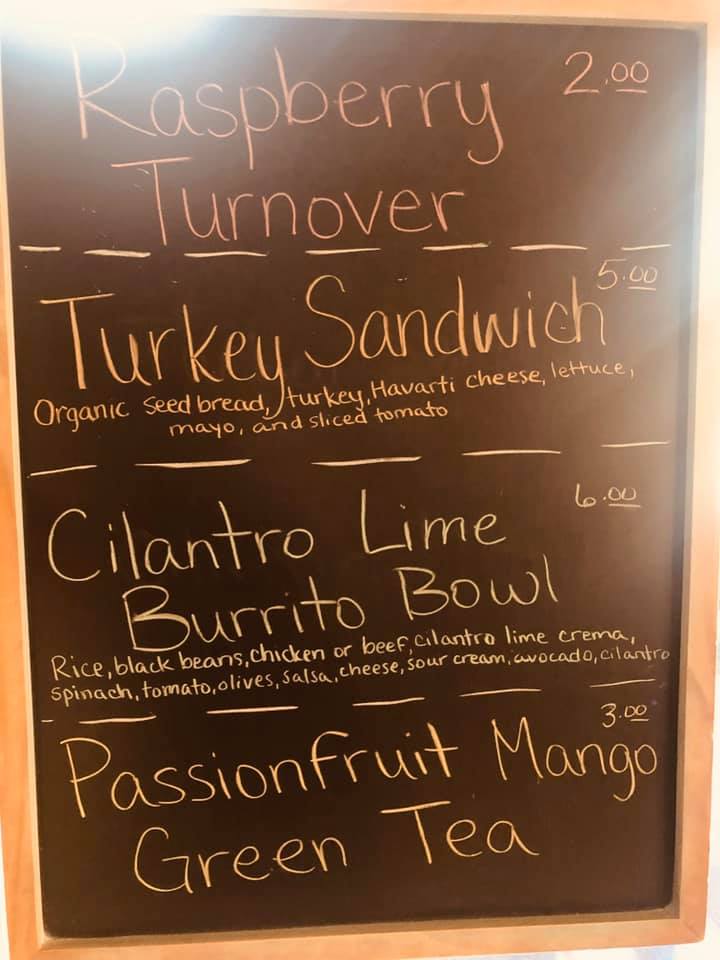 Raspberry 2.00
Turnover
5.00
Turkey Sandwich
Organic seed bread, turkey, Havarti cheese, lettuce,
mayo, and sliced tomato
6.00
Cilantro Lime
Burrito Bowl
Rice, black beans, chicken or beef, cilantro lime crema,
spinach, tomato, olives, salsa, cheese, sour cream, avocado, cilantro
3.00
Passionfruit Mango
Green Tea